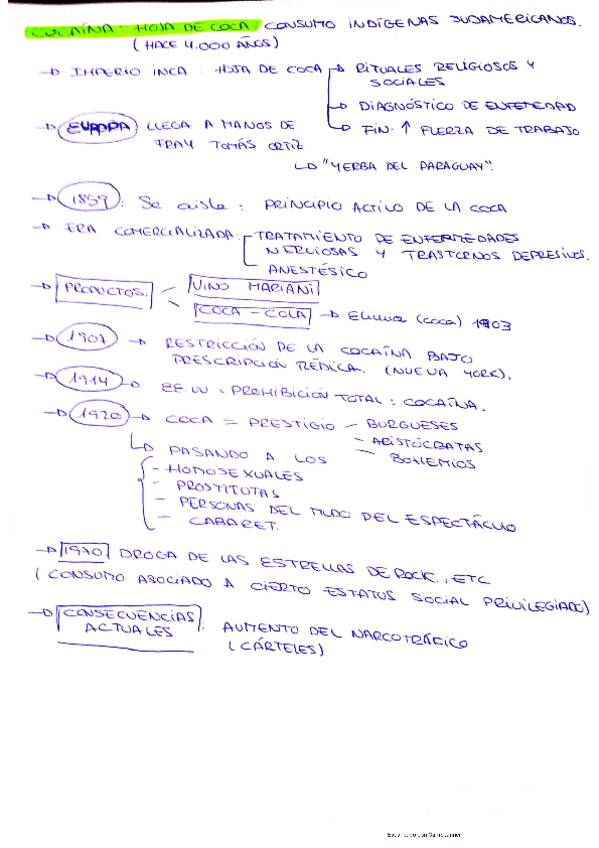 COCAÍNA : HOJA DE COCA CONSUMO INDÍGENAS SUDAMERICANOS.
(HACE 4.000 AÑOS)
→ IMPERIO INCA : HOJA DE COCA → RITUALES RELIGIOSOS Y
SOCIALES
→ DIAGNÓSTICO DE ENFERMEDAD
→ FIN. ↑ FUERZA DE TRABAJO
→ EUROPA LLEGA A MANOS DE
FRAY TOMÁS ORTIZ
↳ "YERBA DEL PARAGUAY".
→ 1859 : Se aisla : PRINCIPIO ACTIVO DE LA COCA
→ ERA COMERCIALIZADA : TRATAMIENTO DE ENFERMEDADES
NERVIOSAS Y TRASTORNOS DEPRESIVOS.
ANESTÉSICO
→ PRODUCTOS: VINO MARIANI
COCA-COLA → Elimina (coca) 1903
→ 1907 → RESTRICCIÓN DE LA COCAÍNA BAJO
PRESCRIPCIÓN MÉDICA. (NUEVA YORK).
→ 1914 → EE.UU : PROHIBICIÓN TOTAL : COCAÍNA.
→ 1920 → COCA = PRESTIGIO - BURGUESES
- ARISTÓCRATAS
- BOHEMIOS
↳ PASANDO A LOS
- HOMOSEXUALES
- PROSTITUTAS
- PERSONAS DEL MUNDO DEL ESPECTÁCULO
- CABARET.
→ 1970 DROGA DE LAS ESTRELLAS DE ROCK., ETC
(CONSUMO ASOCIADO A CIERTO ESTATUS SOCIAL PRIVILEGIADO)
→ CONSECUENCIAS ACTUALES : AUMENTO DEL NARCOTRÁFICO
(CÁRTELES)